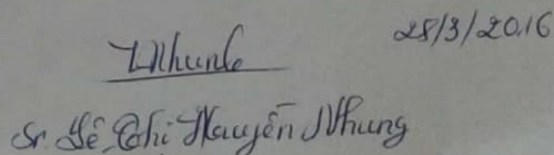 28/3/2016
Sr. Lê Thị Nguyên Nhung